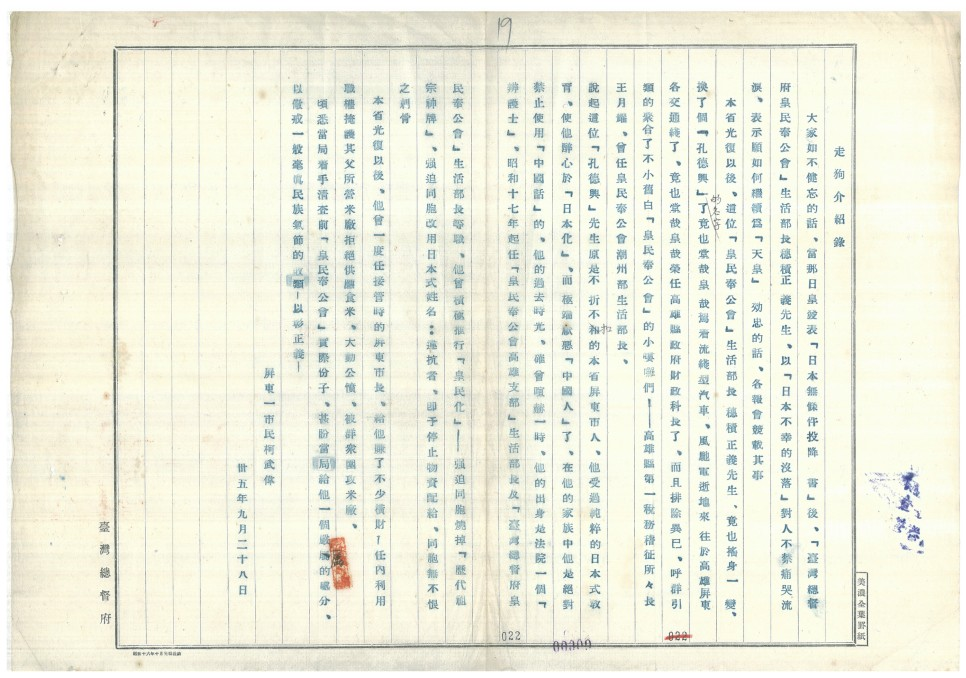 19
走狗介紹錄
大家如不健忘的話、當郵日皇發表「日本無條件投降　書」後、「臺灣總督
府皇民奉公會」生活部長穗積正義先生、以「日本不幸的沒落」對人不禁痛哭流
淚、表示願如何繼續為「天皇」効忠的話、各報會競載其事
本省光復以後、這位「皇民奉公會」生活部長　穗積正義先生、竟也搖身一變、
換了個「孔德興」了竟也堂哉皇哉駕着流綫型汽車、風馳電逝地來往於高雄屏東
各交通綫了、竟也堂哉皇哉榮任高雄縣政府財政科長了、而且排除異己、呼群引
類的聚合了不小舊白「皇民奉公會」的小嘍囉們——高雄縣第一稅務稽征所々長
王月鏘、曾任皇民奉公會潮州部生活部長、
說起這位「孔德興」先生原是不折不扣的本省屏東市人、他受過純粹的日本式教
育、使他醉心於「日本化」、而極端厭惡「中國人」了、在他的家族中他是絕對
禁止使用「中國話」的、他的過去時光、確曾喧赫一時、他的出身是法院一個「
辨護士」、昭和十七年起任「皇民奉公會高雄支部」生活部長及「臺灣總督府皇
民奉公會」生活部長等職、他曾積極推行「皇民化」——强迫同胞燒掉「歷代祖
宗神牌」、强迫同胞改用日本式姓名：違抗者、即予停止物資配給、同胞無不恨
之刺骨
本省光復以後、他曾一度任接管時的屏東市長、給他賺了不少橫財—任內利用
職權掩護其父所營米廠拒絕供應食米、大動公憤、被群衆圍攻米廠、
頃悉當局着手清查前「皇民奉公會」實際份子、甚盼當局給他一個嚴厲的處分、
以儆戒一般毫無民族氣節的敗類—以彰正義—
屏東一市民柯武偉
卅五年九月二十八日
臺灣總督府
美濃全葉罫紙
022
022